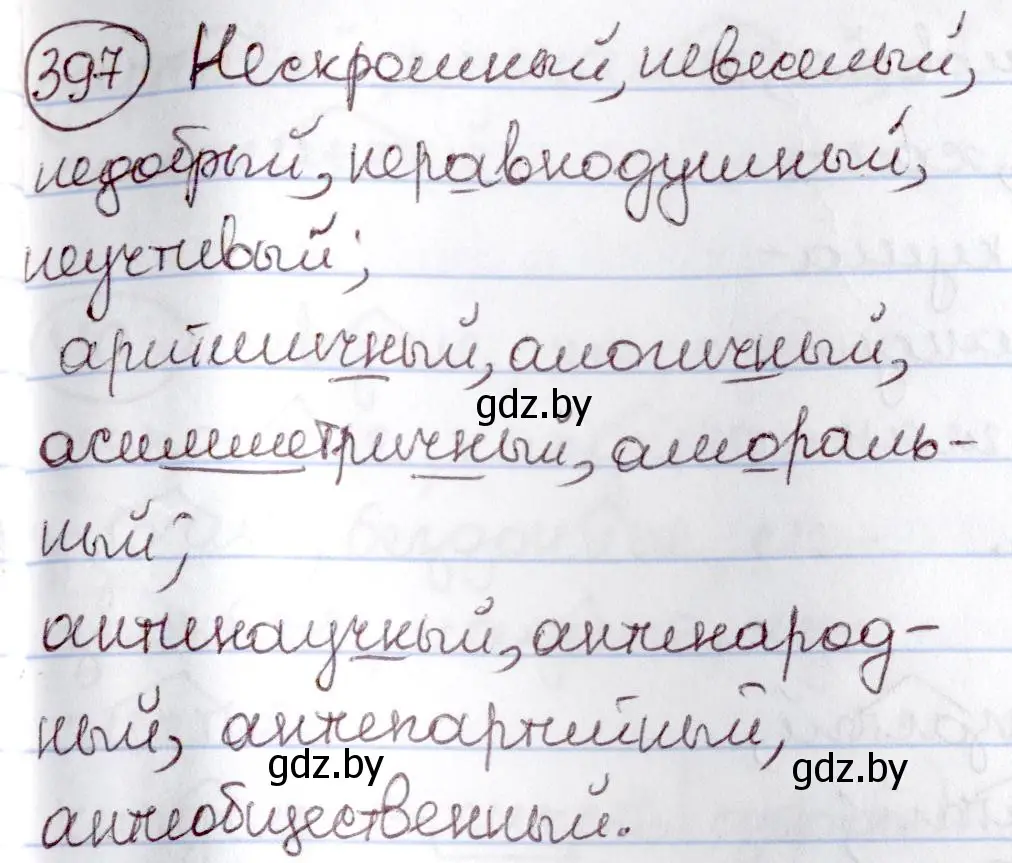 397 Нескромный, невеселый,
недобрый, неравнодушный,
неучтивый;
аритмичный, алогичный,
gdz.by
асимметричный, амораль-
ный;
антинаучный, антинарод-
ный, антипартийный,
gdz.by gdz.by
антиобщественный.